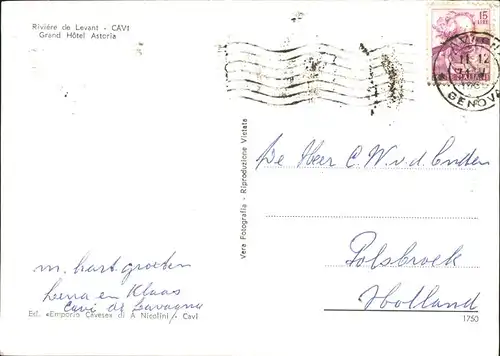 Rivière de Levant - CAVI
Grand Hôtel Astoria
15
LIRE
11-12
GENOVA
Vera Fotografia - Riproduzione Vietata
De Heer C.W. v.d. Enden
Polsbroek
Holland
m. hart. groeten
Leena en Klaas
Cavi di Lavagna
Ed. «Emporio Cavese» di A Nicolini - Cavi
1750